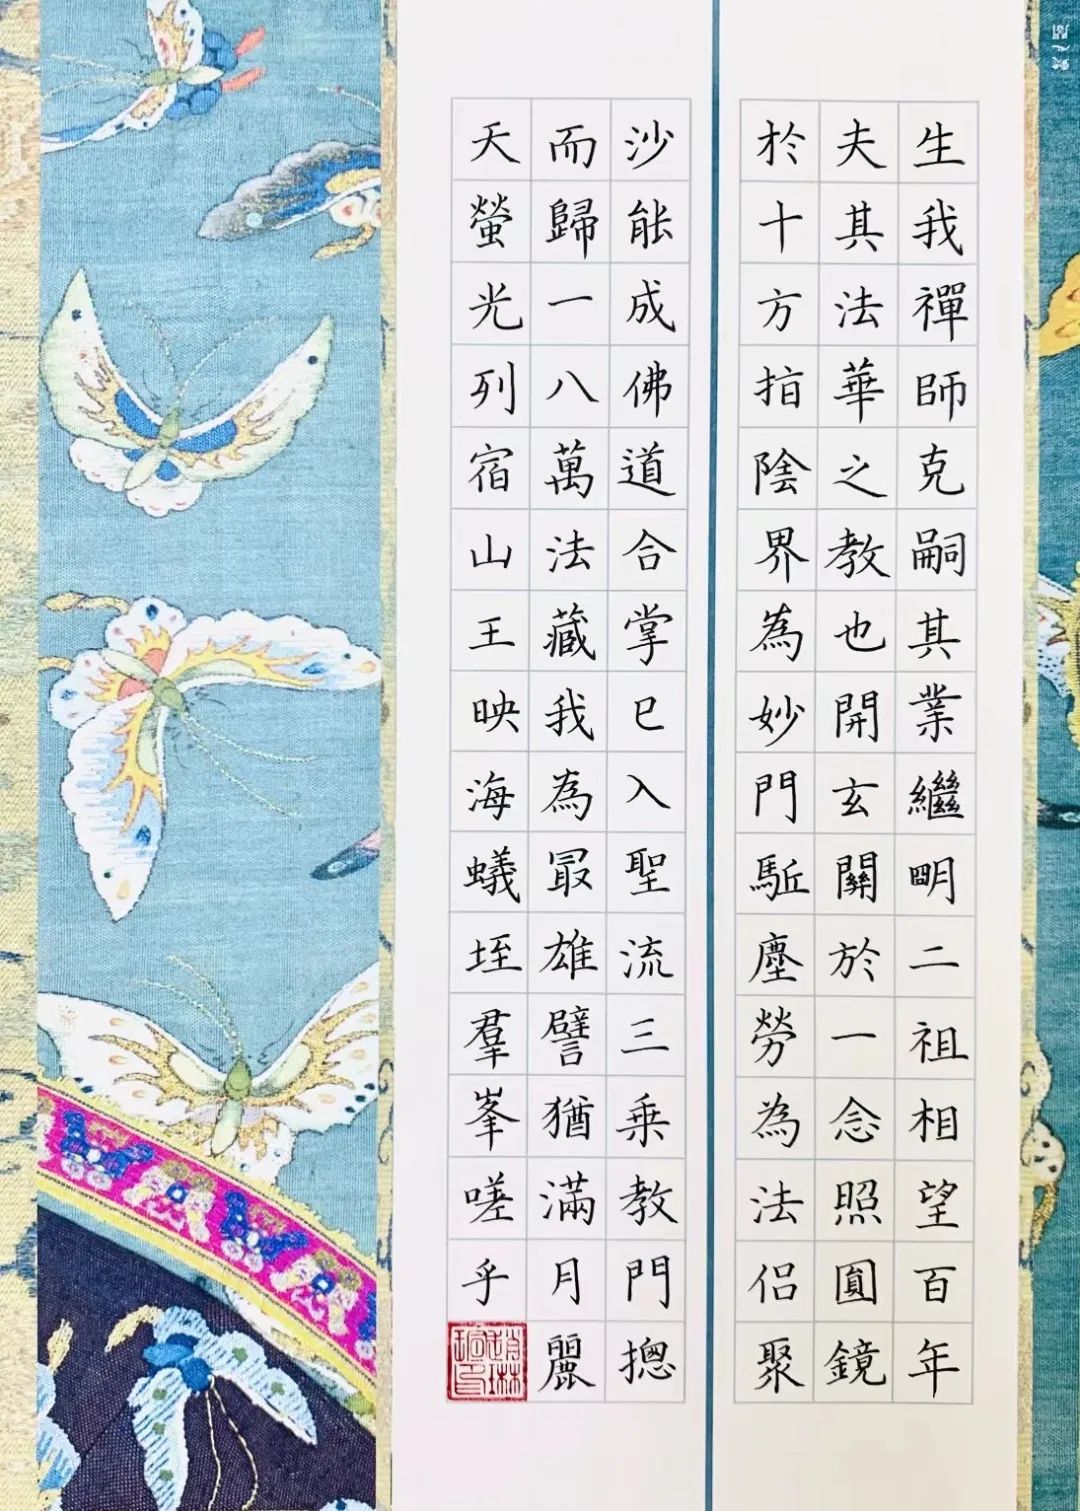 生我禪師克嗣其業繼明二祖相望百年
夫其法華之教也開玄關於一念照圓鏡
於十方指陰界為妙門駈塵勞為法侶聚
沙能成佛道合掌已入聖流三乘教門摠
而歸一八萬法藏我為最雄譬猶滿月麗
天螢光列宿山王映海蟻垤羣峯嗟乎